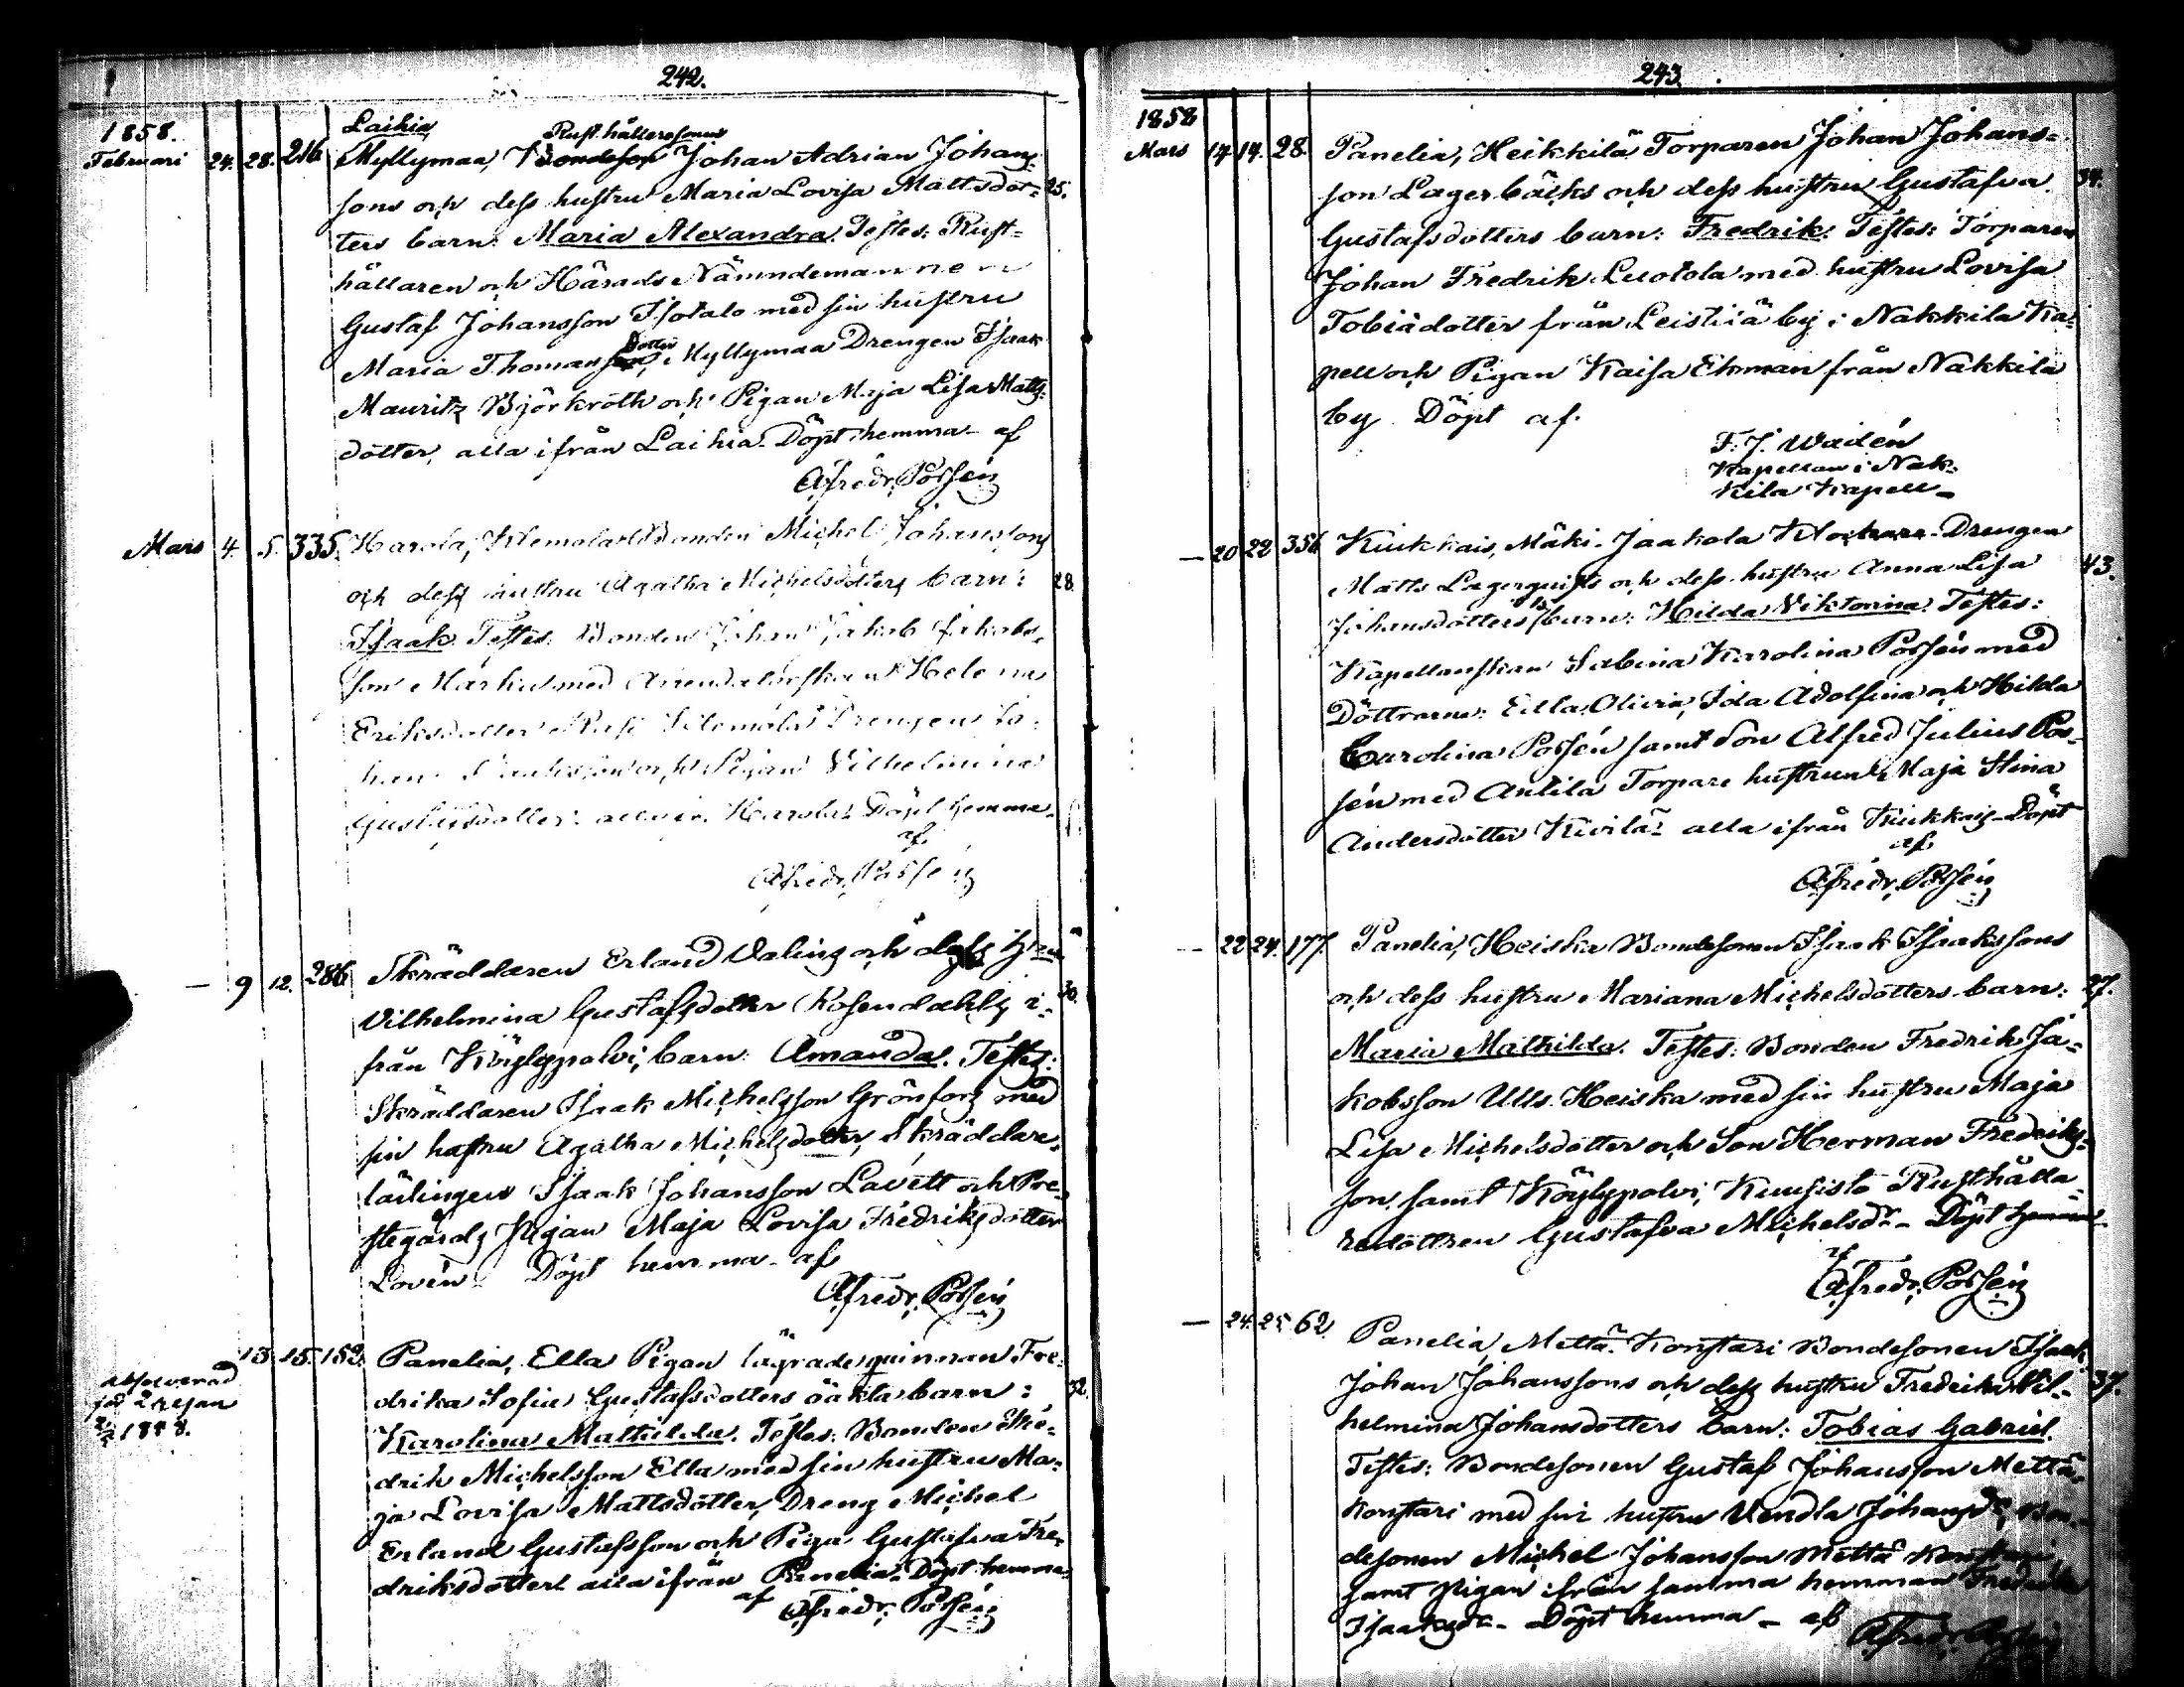 242.
1858.
Februari 24. 28. 216
Laihia, Rusthållaresonens
Myllymaa, Bondeson Johan Adrian Johans-
sons och dess hustru Maria Lovisa Mattsdot- 25.
ters barn: Maria Alexandra. Testes: Rust-
hållaren och Härads Nämndemannen
Gustaf Johansson Isotalo med sin hustru
Maria Thomas dotter, Myllymaa Drengen Isaak
Mauritz Björkroth och Pigan Maja Lisa Matts-
dotter, alla ifrån Laihia. Döpt hemma af
A. Fredr. Possén
Mars 4. 5. 335. Harola, Klemola Bonden Michel Johanssons
och dess hustru Agatha Michelsdotters barn: 28.
Isaak. Testes: Bonden Johan Jakob Jakobs-
son Marku med Arendatorskan Helena
Eriksdotter Drengen Jo-
han och Pigan Vilhelmina
Gustafsdotter alla ifr. Harola. Döpt hemma
af
A. Fredr. Possén
— 9 12. 286 Skräddaren Erland Valins och dess H:u
Vilhelmina Gustafsdotter Rosendahls i- 30.
från Köylypolvi, barn: Amanda. Testes:
Skräddaren Isaak Michelsson Grönfors med
sin hustru Agatha Michelsdotter, Skräddare-
lärlingen Isaak Johansson Lavett och Pre-
stegårds Pigan Maja Lovisa Fredriksdotter
Lovén. Döpt hemma af
A. Fredr. Possén
13. 15. 152. Panelia, Ella Pigan lägrade qvinnan Fre-
Absolverad
för 2 resan
1858.
drika Sofia Gustafsdotters oäkta barn: 32.
Karolina Mathilda. Testes: Bonden Fre-
drik Michelsson Ella med sin hustru Ma-
ja Lovisa Mattsdotter, Dreng Michel
Erland Gustafsson och Piga Gustafva Fre-
driksdotter alla ifrån Panelia. Döpt hemma
af A. Fredr. Possén
243.
1858
Mars 14. 14. 28. Panelia, Heikkilä Torparen Johan Johans-
son Lagerbäcks och dess hustru Gustafva 34.
Gustafsdotters barn: Fredrik. Testes: Torparen
Johan Fredrik Luotola med hustru Lovisa
Tobiädotter från Leistilä by i Nakkila Ka-
pell och Pigan Kaisa Ekman från Nakkila
by Döpt af
F. J. Wadén
Kapellan i Nak-
kila Kapell
— 20 22 356 Kiukkais, Mäki-Jaakola Klockare-Drengen
Matts Lagerquists och dess hustru Anna Lisa 43.
Johansdotters barn: Hilda Viktorina. Testes:
Kapellanskan Sabina Karolina Possén med
Döttrarne: Ella Olivia, Ida Adolfina och Hilda
Carolina Possén samt Son Alfred Julius Pos-
sén med Anttila Torpare hustrun Maja Stina
Andersdotter Kivilä alla ifrån Kiukkais. Döpt
af
A. Fredr. Possén
— 22 24. 177. Panelia, Heiska Bondesonen Isaak Isaakssons
och dess hustru Mariana Michelsdotters barn: 27.
Maria Mathilda. Testes: Bonden Fredrik Ja-
kobsson Ulls. Heiska med sin hustru Maja
Lisa Michelsdotter och Son Herman Fredriks-
son, samt Köylypolvi, Kuusisto Rusthålla-
redottren Gustafva Michelsdr. Döpt hemma
af
A. Fredr. Possén
— 24. 25 62. Panelia, Mettä-Konstari Bondesonen Isaak
Johan Johanssons och dess hustru Fredrika Vil- 37.
helmina Johansdotters barn: Tobias Gabriel.
Testes: Bondesonen Gustaf Johansson Mettä-
Konstari med sin hustru Vendla Johansdr, Bon-
desonen Michel Johansson Mettä Konstari,
samt Pigan ifrån samma hemman Fredrika
Isaaksdr. Döpt hemma af
A. Fredr. Possén